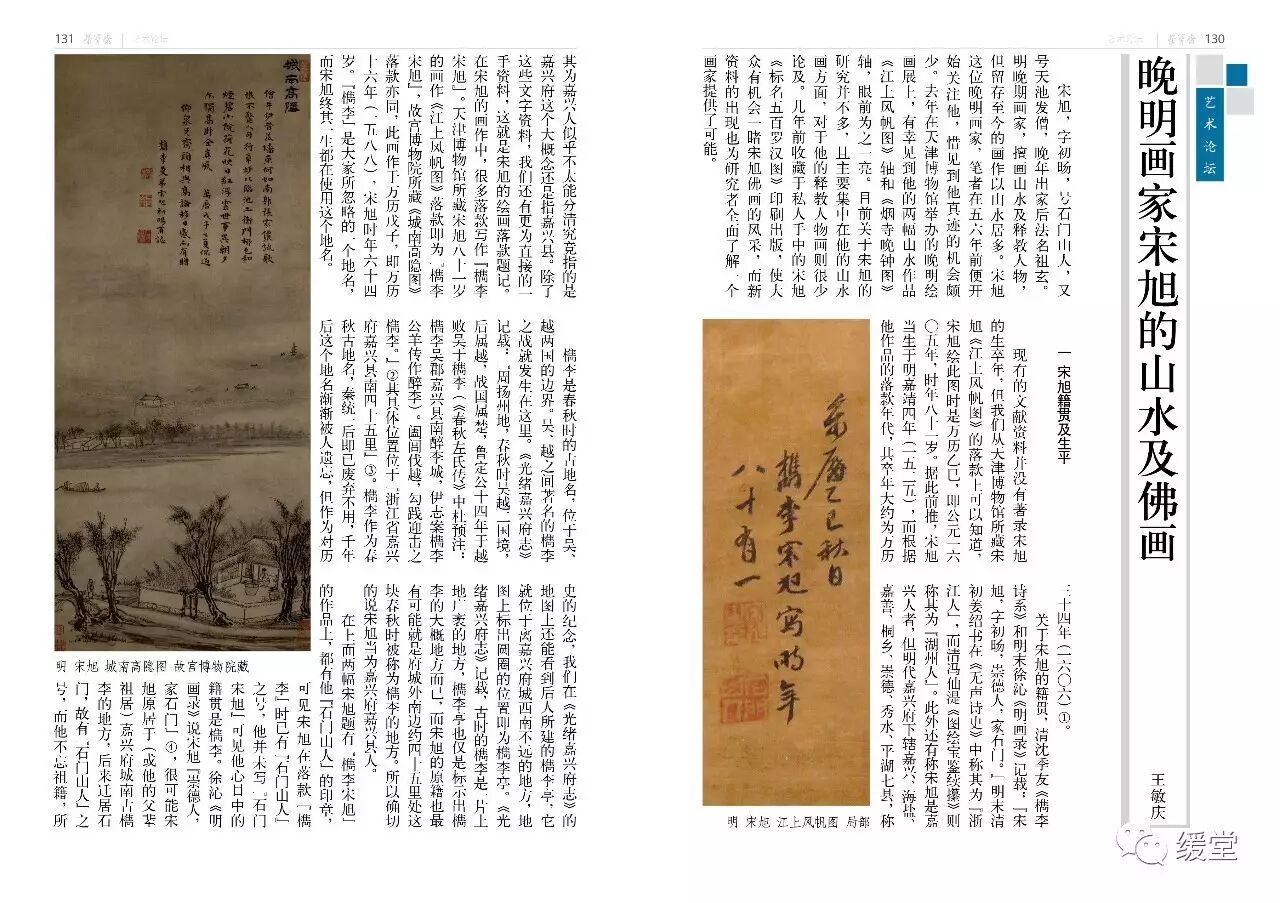 130
艺术论坛
晚明画家宋旭的山水及佛画
王敏庆
宋旭,字初旸,号石门山人,又
号天池发僧,晚年出家后法名祖玄。
明晚期画家,擅画山水及释教人物,
但留存至今的画作以山水居多。宋旭
这位晚明画家,笔者在五六年前便开
始关注他,惜见到他真迹的机会颇
少。去年在天津博物馆举办的晚明绘
画展上,有幸见到他的两幅山水作品
《江上风帆图》轴和《烟寺晚钟图》
轴,眼前为之一亮。目前关于宋旭的
研究并不多,且主要集中在他的山水
画方面,对于他的释教人物画则很少
论及。几年前收藏于私人手中的宋旭
《标名五百罗汉图》印刷出版,使大
众有机会一睹宋旭佛画的风采,而新
资料的出现也为研究者全面了解一个
画家提供了可能。
一 宋旭籍贯及生平
现有的文献资料并没有著录宋旭
的生卒年,但我们从天津博物馆所藏宋
旭《江上风帆图》的落款上可以知道,
宋旭绘此图时是万历乙巳,即公元一六
〇五年,时年八十一岁。据此前推,宋旭
当生于明嘉靖四年(一五二五),而根据
他作品的落款年代,其卒年大约为万历
三十四年(一六〇六)①。
关于宋旭的籍贯,清沈季友《檇李
诗系》和明末徐沁《明画录》记载:『宋
旭,字初旸,崇德人,家石门。』明末清
初姜绍书在《无声诗史》中称其为『浙
江人』,而清冯仙湜《图绘宝鉴续纂》则
称其为『湖州人』。此外还有称宋旭是嘉
兴人者,但明代嘉兴府下辖嘉兴、海盐、
嘉善、桐乡、崇德、秀水、平湖七县,称
万历乙巳秋日
檇李宋旭写时年
八十有一
明 宋旭 江上风帆图 局部
131
其为嘉兴人似乎不太能分清究竟指的是
嘉兴府这个大概念还是指嘉兴县。除了
这些文字资料,我们还有更为直接的一
手资料,这就是宋旭的绘画落款题记。
在宋旭的画作中,很多落款写作『檇李
宋旭』。天津博物馆所藏宋旭八十一岁
的画作《江上风帆图》落款即为『檇李
宋旭』,故宫博物院所藏《城南高隐图》
落款亦同,此画作于万历戊子,即万历
十六年(一五八八),宋旭时年六十四
岁。『檇李』是大家所忽略的一个地名,
而宋旭终其一生都在使用这个地名。
檇李是春秋时的古地名,位于吴、
越两国的边界。吴、越之间著名的檇李
之战就发生在这里。《光绪嘉兴府志》
记载:『周扬州地,春秋时吴越二国境,
后属越,战国属楚,鲁定公十四年于越
败吴于檇李(《春秋左氏传》中杜预注:
檇李吴郡嘉兴县南醉李城,伊志案檇李
公羊传作醉李)。阖闾伐越,勾践迎击之
檇李。』②其具体位置位于『浙江省嘉兴
府嘉兴县南四十五里』③。檇李作为春
秋古地名,秦统一后即已废弃不用,千年
后这个地名渐渐被人遗忘,但作为对历
史的纪念,我们在《光绪嘉兴府志》的
地图上还能看到后人所建的檇李亭,它
就位于离嘉兴府城西南不远的地方,地
图上标出圆圈的位置即为檇李亭。《光
绪嘉兴府志》记载,古时的檇李是一片上
地广袤的地方,檇李亭也仅是标示出檇
李的大概地方而已,而宋旭的原籍也最
有可能就是府城外南边约四十五里处这
块春秋时被称为檇李的地方。所以确切
的说宋旭当为嘉兴府嘉兴县人。
在上面两幅宋旭题有『檇李宋旭』
的作品上,都有他『石门山人』的印章,
可见宋旭在落款『檇
李』时已有『石门山人』
之号,他并未写『石门
宋旭』可见他心目中的
籍贯是檇李。徐沁《明
画录》说宋旭『崇德人,
家石门』④,很可能宋
旭原居于(或他的父辈
祖居)嘉兴府城南古檇
李的地方,后来迁居石
门,故有『石门山人』之
号,而他不忘祖籍,所
城南高隐
明 宋旭 城南高隐图 故宫博物院藏
缓堂